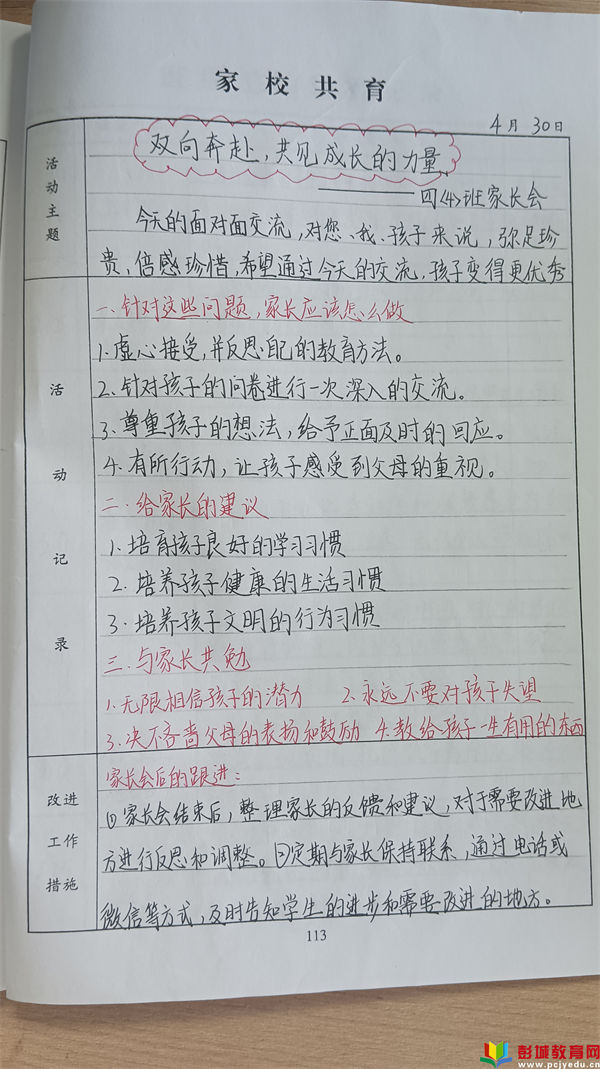 家校共育
4月30日
活动主题
双向奔赴，共见成长的力量
——四(4)班家长会
今天的面对面交流，对您、我、孩子来说，弥足珍
贵，倍感珍惜，希望通过今天的交流，孩子变得更优秀
活动记录
一、针对这些问题，家长应该怎么做
1.虚心接受，并反思自己的教育方法。
2.针对孩子的问卷进行一次深入的交流。
3.尊重孩子的想法，给予正面及时的回应。
4.有所行动，让孩子感受到父母的重视。
二.给家长的建议
1.培育孩子良好的学习习惯
2.培养孩子健康的生活习惯
3.培养孩子文明的行为习惯
三.与家长共勉
1.无限相信孩子的潜力 2.永远不要对孩子失望
3.决不吝啬父母的表扬和鼓励 4.教给孩子一生有用的东西
改进
工作
措施
家长会后的跟进：
①家长会结束后，整理家长的反馈和建议，对于需要改进地
方进行反思和调整。②定期与家长保持联系，通过电话或
微信等方式，及时告知学生的进步和需要改进的地方。
113
彭城教育网
www.pcjyedu.cn